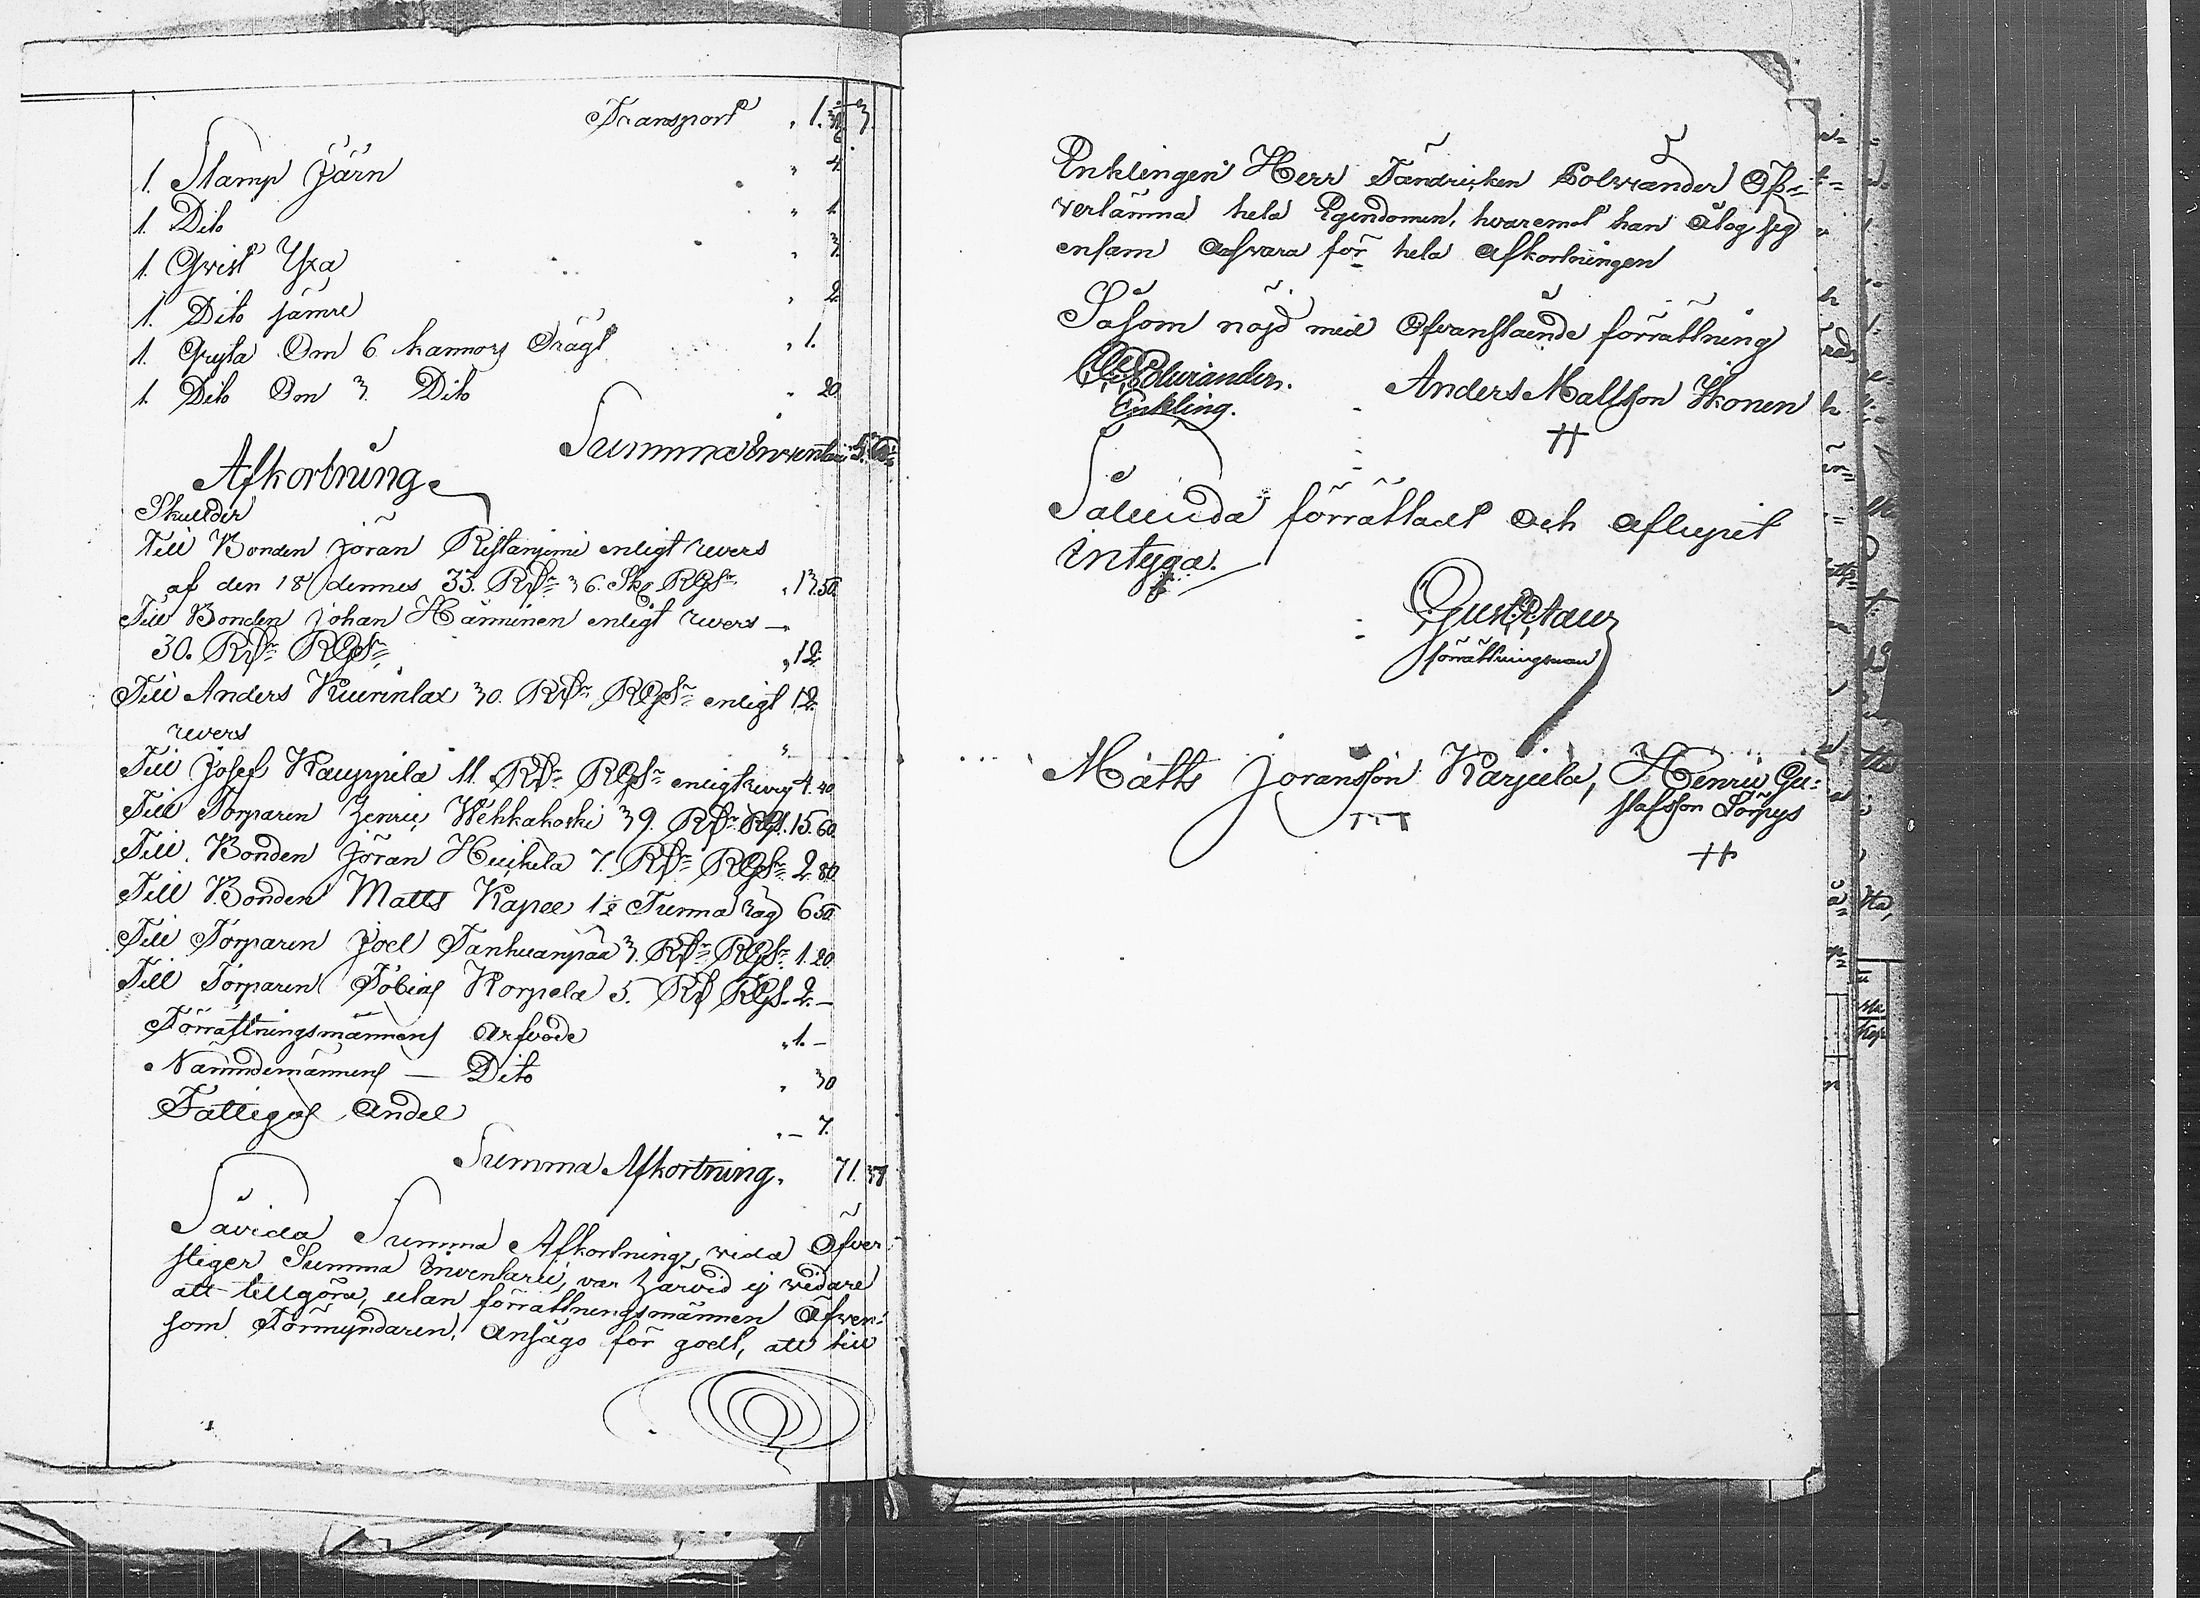 Transport 1. 3
1. Stamp Järn 4
1. Dito 1
1. Qvist Yxa 3.
1. Dito sämre 2
1. Gryta Om 6 kannors Drägt 1.
1. Dito Om 3. Dito 20
Summa Inventarii
Afkortning
Skullder
Till Bonden Jöran Ristaniemi enligt revers
af den 18 dennes 33. Rdr 36. Sk RGSr 13.50
Till Bonden Johan Hänninen enligt revers —
30. Rdr RGSr 12
Till Anders Kuurinlax 30. Rdr RGSr enligt 12
revers
Till Josef Kauppila 11. Rdr RGSr enligt revers 4.40
Till Torparen Henric Wehkakoski 39. Rdr RGS. 15.60.
Till Bonden Jöran Huikela 7. Rdr RGSr 2.80
Till Bonden Matts Kapee 1½ Tunna råg 6 50
Till Torparen Joel Tanhuanpää 3. Rdr RGSr 1.20
Till Torparen Tobias Korpela 5. Rd RGS. 2. —
Förrättningsmannens Arfvode 1. —
Nämndemännens — Dito 30
Fattigas Andel — 7.
Summa Afkortning. 71. 37
Såvida Summa Afkortning, vida Öfver
stiger Summa Inventarii, var härvid ej vidare
att tillgöra, utan förrättningsmännen Äfven
som Förmyndaren, Ansågo för godt, att till
Enklingen Herr Fändricken Polviander Öf-
verlämna hela Egendomen, hvaremot han Åtog sig
ensam Ansvara för hela Afkortningen
Såsom nöjd med Ofvanstående förrättning
Polviander. Anders Mattsson Ikonen
Enkling.
Sålunda förrättadt Och Aflupit
intyga.
förrättningsman
Matts Joransson Karjula, Henric Gu:
stafsson Sorpys